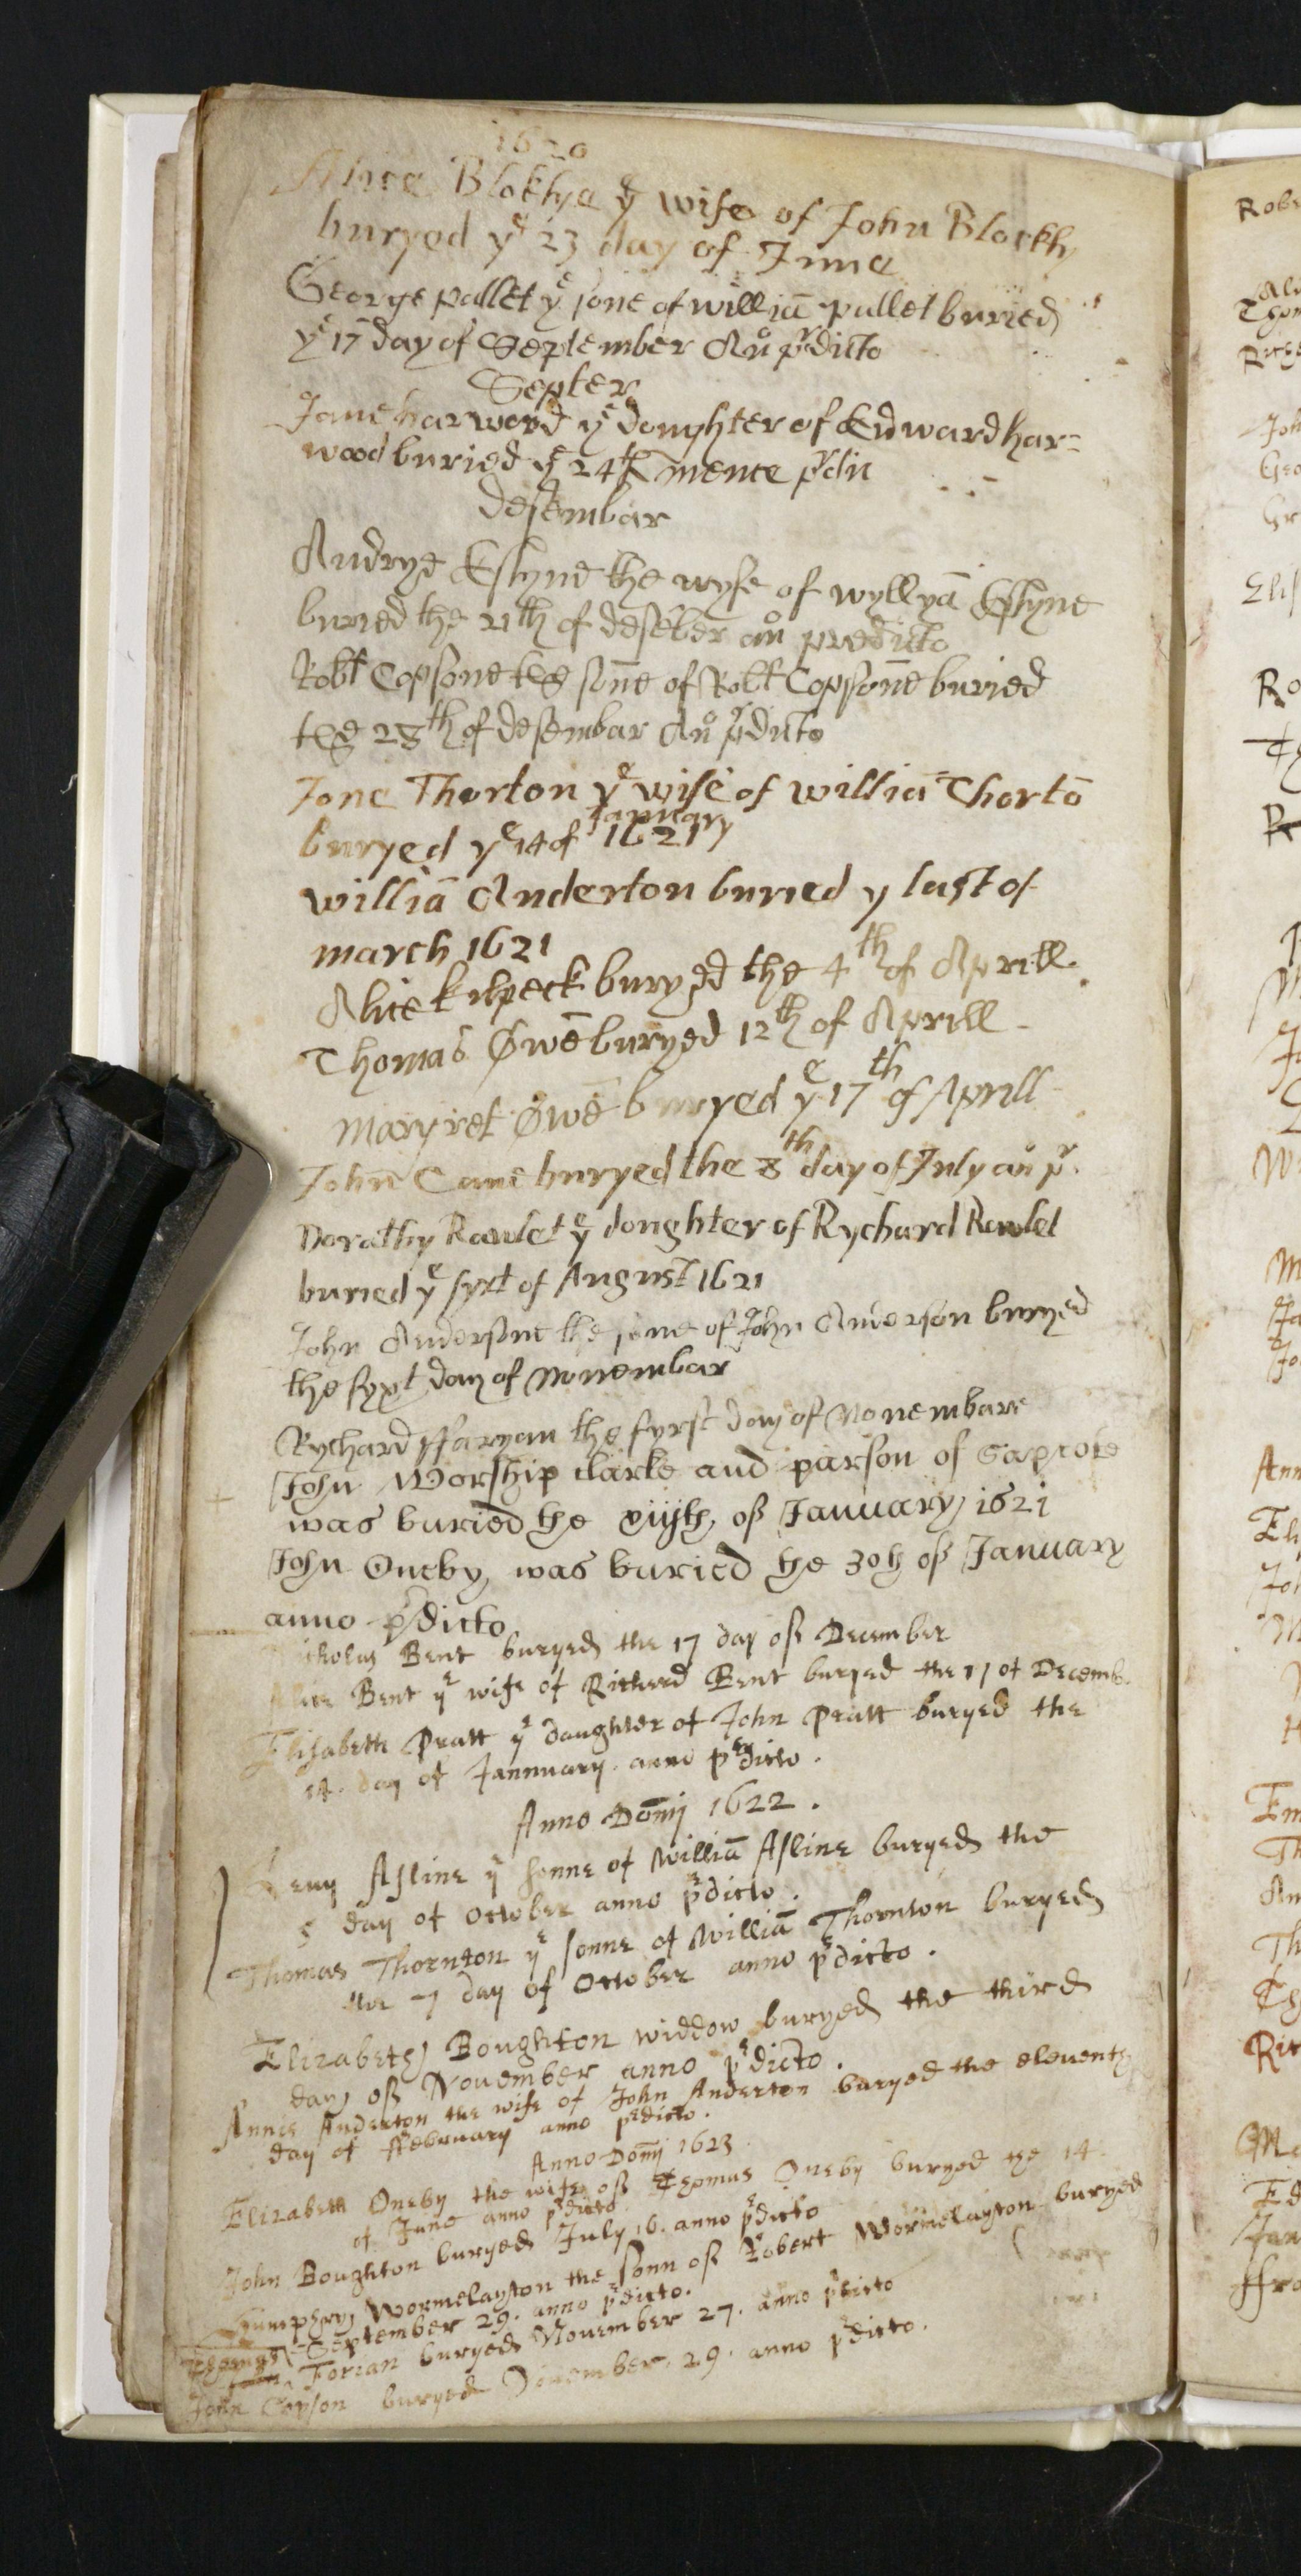 1620
Alice Blokhye yͤ wife of John Blockhy
buryed yͤ 23 day of June
George pallet yͤ sone of williā pallet buried
yͤ 17 day of September Ano pʳdicto
Septer
Jane harword yͤ doughter of Edward har=
wood buried yͤ 24th mence pʳdic
desembar
Audrye Eslyne the wyfe of wyllyā Eslyne
buried the 21th of desēber ano predicto
Robt Copsone the sōne of Robt Copsōne buried
the 28th of desembar Ano pʳdicto
Jone Thorton yͤ wife of williā Thortō
January
buryed yͤ 14 of 1621
williā Anderton buried y last of
march 1621
Alice kilpeck buryed the 4th of Aprill.
Thomas Owē buryed 12th of Aprill
Margret Owē buryed yͤ 17th of Aprill
John Cane buryed the 8th day of July ano pʳ.
Dorathy Rawlet yͤ doughter of Rychard Rawlet
buried yͤ syxt of August 1621
John Andersone the sone of John Anderson buryed
the syxt day of Nouembar
Rychard ffaryan the fyrst day of Nouembare
John Worship clarke and parson of Sapcote
was buried the viijth of January 1621
John Oneby was buried the 30th of January
anno pʳdicto
Nicholas Bent buryed the 17 day of December
Alice Bent yͤ wife of Richard Bent buryed the 17 of Decemb.
Elisabeth Pratt yͤ daughter of John Pratt buryed the
14. day of Jannuary. anno pʳdicto.
Anno Domī 1622.
Henry Asline yͤ sonne of Williā Asline buryed the
5 day of October anno pʳdicto.
Thomas Thornton yͤ sonne of Williā Thornton buryed
the 7 day of October anno pʳdicto.
Elizabeth Boughton widdow buryed the third
day of Nouember anno pʳdicto.
Annis Anderton the wife of John Anderton buryed the eleuenth
day of ffebruary anno pʳdicto.
Anno Domī 1623
Elizabeth Oneby the wife of Thomas Oneby buryed the 14
of June anno pʳdicto
John Boughton buryed July 16. anno pʳdicto
Humphery Wormelayton the sonn of Robert Wormelayton buryed
September 29. anno pʳdicto.
Thomas Forian buryed Nouember 27. anno pʳdicto
John Copson buryed Nouember. 29. anno pʳdicto.